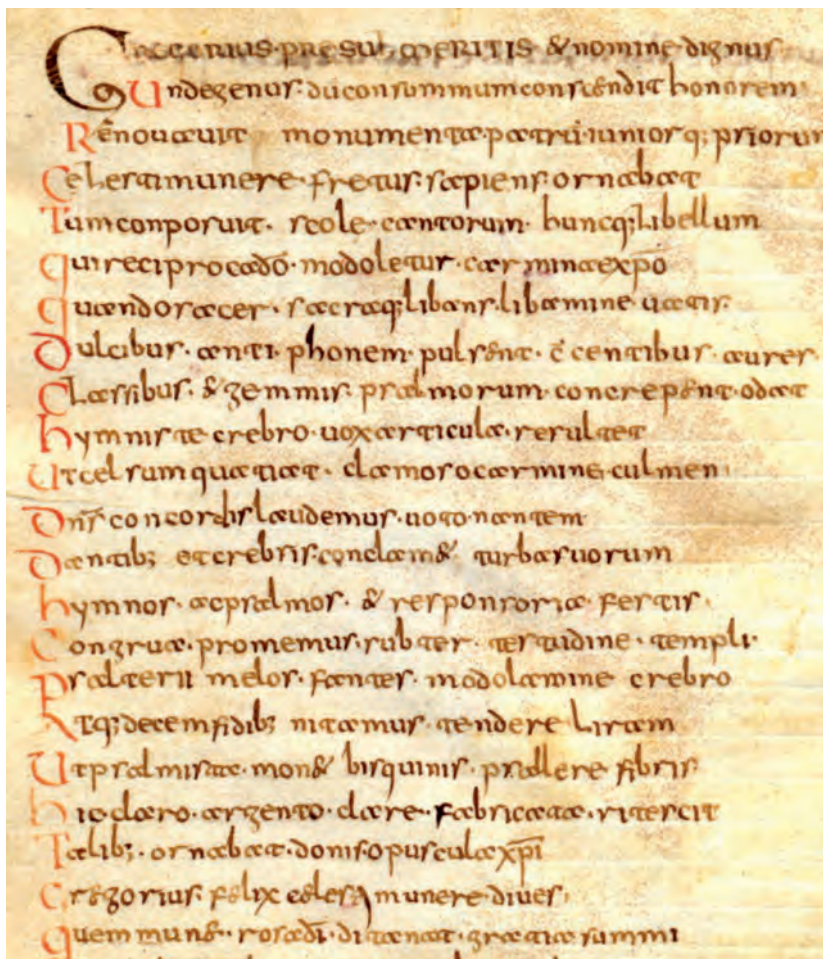 GREGORIUS·PRESUL MERITIS & nomine dignus
Unde genus· dũ con summum conscendit honorem
Rẽnovavit monumenta· patrũ· iuniorq; priorum
Celesti munere· fretus· sapiens· ornabat
Tum conposuit· scole· cantorum· huncq; libellum
qui reciprocado· modoletur· carmina exp̃o
quando sacer· sacraq; libans· libamine vatis·
Dulcibus· anti phonem· pulsent· c̃centibus· aures
Classibus· & gemmis· psalmorum· concrepent· odat
hymnis te crebro· vox articula· resultet
Ut celsum quatiat· clamoso carmine culmen
Dñs concordis laudemus· voto· nantem
Dantib; et crebris· conclam& turba suorum
hymnos· ac psalmos· & responsoria fertis·
Congrua· promemus· sub ter· testudine· templi·
Psalterii melos· fantes· modolamine crebro
Atq; decem fidib; nitamus· tendere liram
Ut psalmista· mon& bisquinis· psallere fibris·
hic claro· argento· clare· fabricata· sitercit
Talib;· ornabat· donis· opuscula xp̃i
Gregorius· felix celesti munere· dives·
quem mun&·· rosa dĩ· ditanat· gratia summi